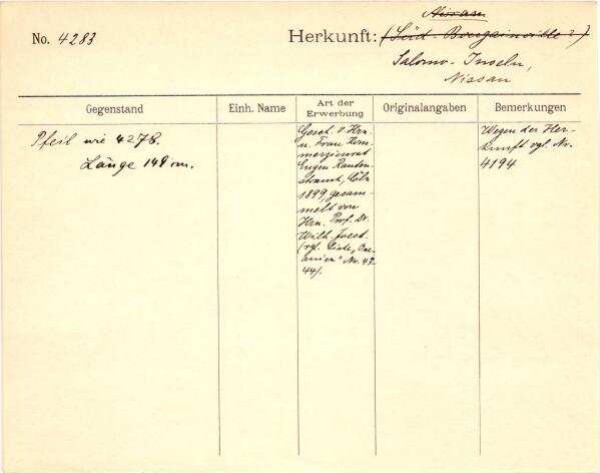 Nissan
No. 4283 Herkunft: (Süd-Bougainville?)
Salomo-Inseln,
Nissan
Gegenstand Einh. Name Art der Erwerbung Originalangaben Bemerkungen
Pfeil wie 4278.
Länge 148 cm.
Gesch. v. Hrn.
u. Frau Kom-
merzienrat
Eugen Rauten-
strauch, Cöln
1899, gesam-
melt von
Hrn. Prof. Dr.
Wilh. Joest.
(vgl. Liste „Oze-
anien" Nr. 43
44).
Wegen der Her-
kunft vgl. Nr.
4194